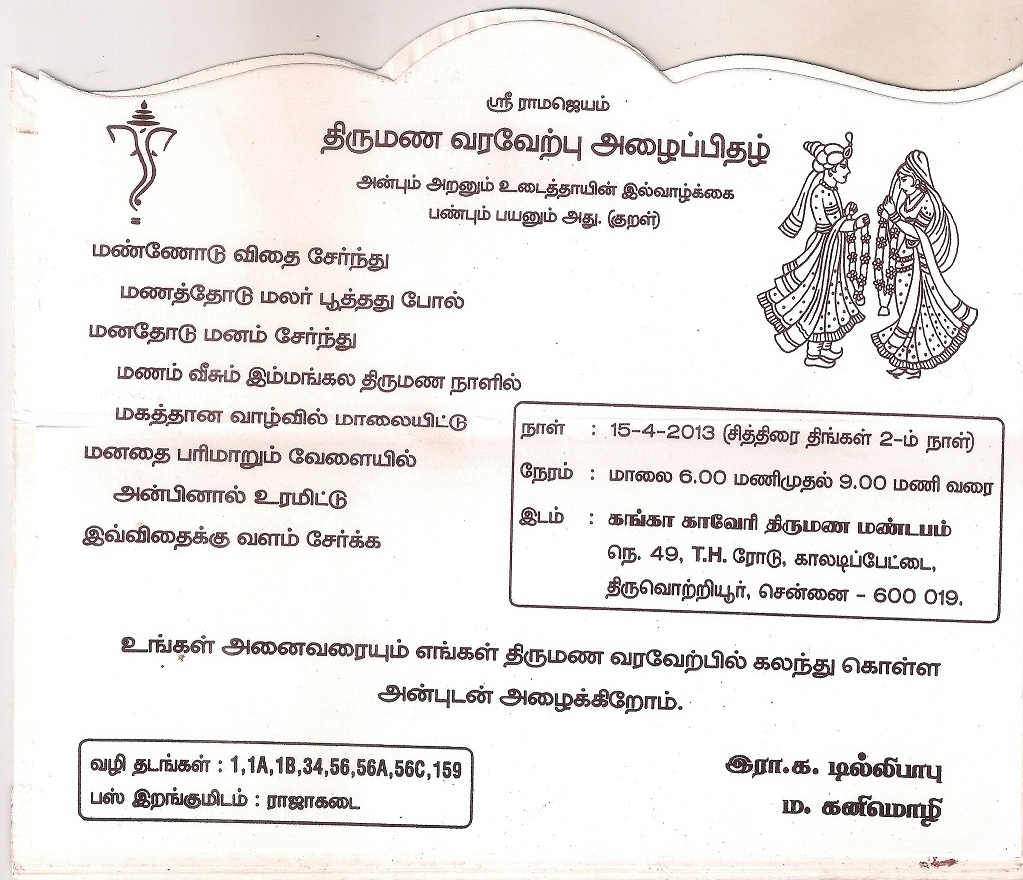 ஸ்ரீ ராமஜெயம்
திருமண வரவேற்பு அழைப்பிதழ்
அன்பும் அறனும் உடைத்தாயின் இல்வாழ்க்கை
பண்பும் பயனும் அது. (குறள்)
மண்ணோடு விதை சேர்ந்து
மணத்தோடு மலர் பூத்தது போல்
மனதோடு மனம் சேர்ந்து
மணம் வீசும் இம்மங்கல திருமண நாளில்
மகத்தான வாழ்வில் மாலையிட்டு
மனதை பரிமாறும் வேளையில்
அன்பினால் உரமிட்டு
இவ்விதைக்கு வளம் சேர்க்க
நாள் : 15-4-2013 (சித்திரை திங்கள் 2-ம் நாள்)
நேரம் : மாலை 6.00 மணிமுதல் 9.00 மணி வரை
இடம் : கங்கா காவேரி திருமண மண்டபம்
நெ. 49, T.H. ரோடு, காலடிப்பேட்டை,
திருவொற்றியூர், சென்னை - 600 019.
உங்கள் அனைவரையும் எங்கள் திருமண வரவேற்பில் கலந்து கொள்ள
அன்புடன் அழைக்கிறோம்.
வழி தடங்கள் : 1,1A,1B,34,56,56A,56C,159
பஸ் இறங்குமிடம் : ராஜாகடை
இரா.க. டில்லிபாபு
ம. கனிமொழி